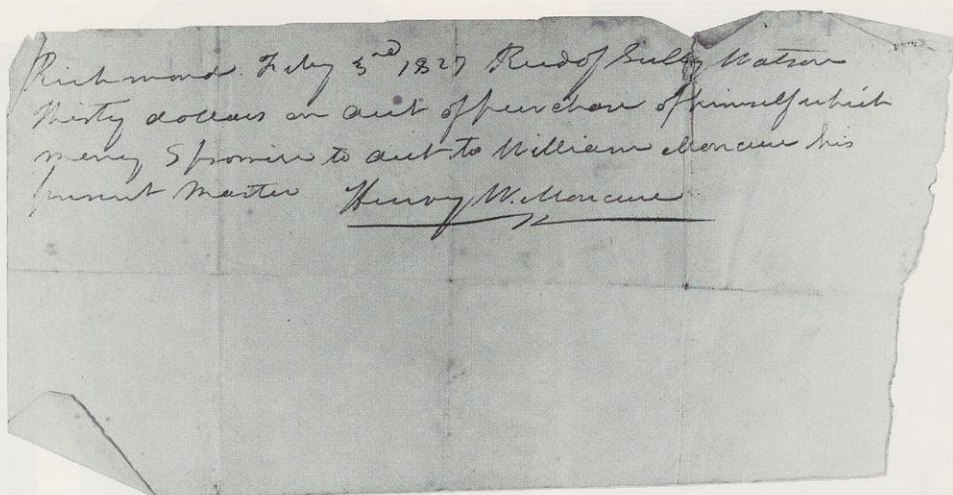 Richmond. Feby 3rd 1827 Recd of Sully Watson
thirty dollars on acct of purchase of himself which
money I promise to acct to William Moncure his
present Master Henry W. Moncure